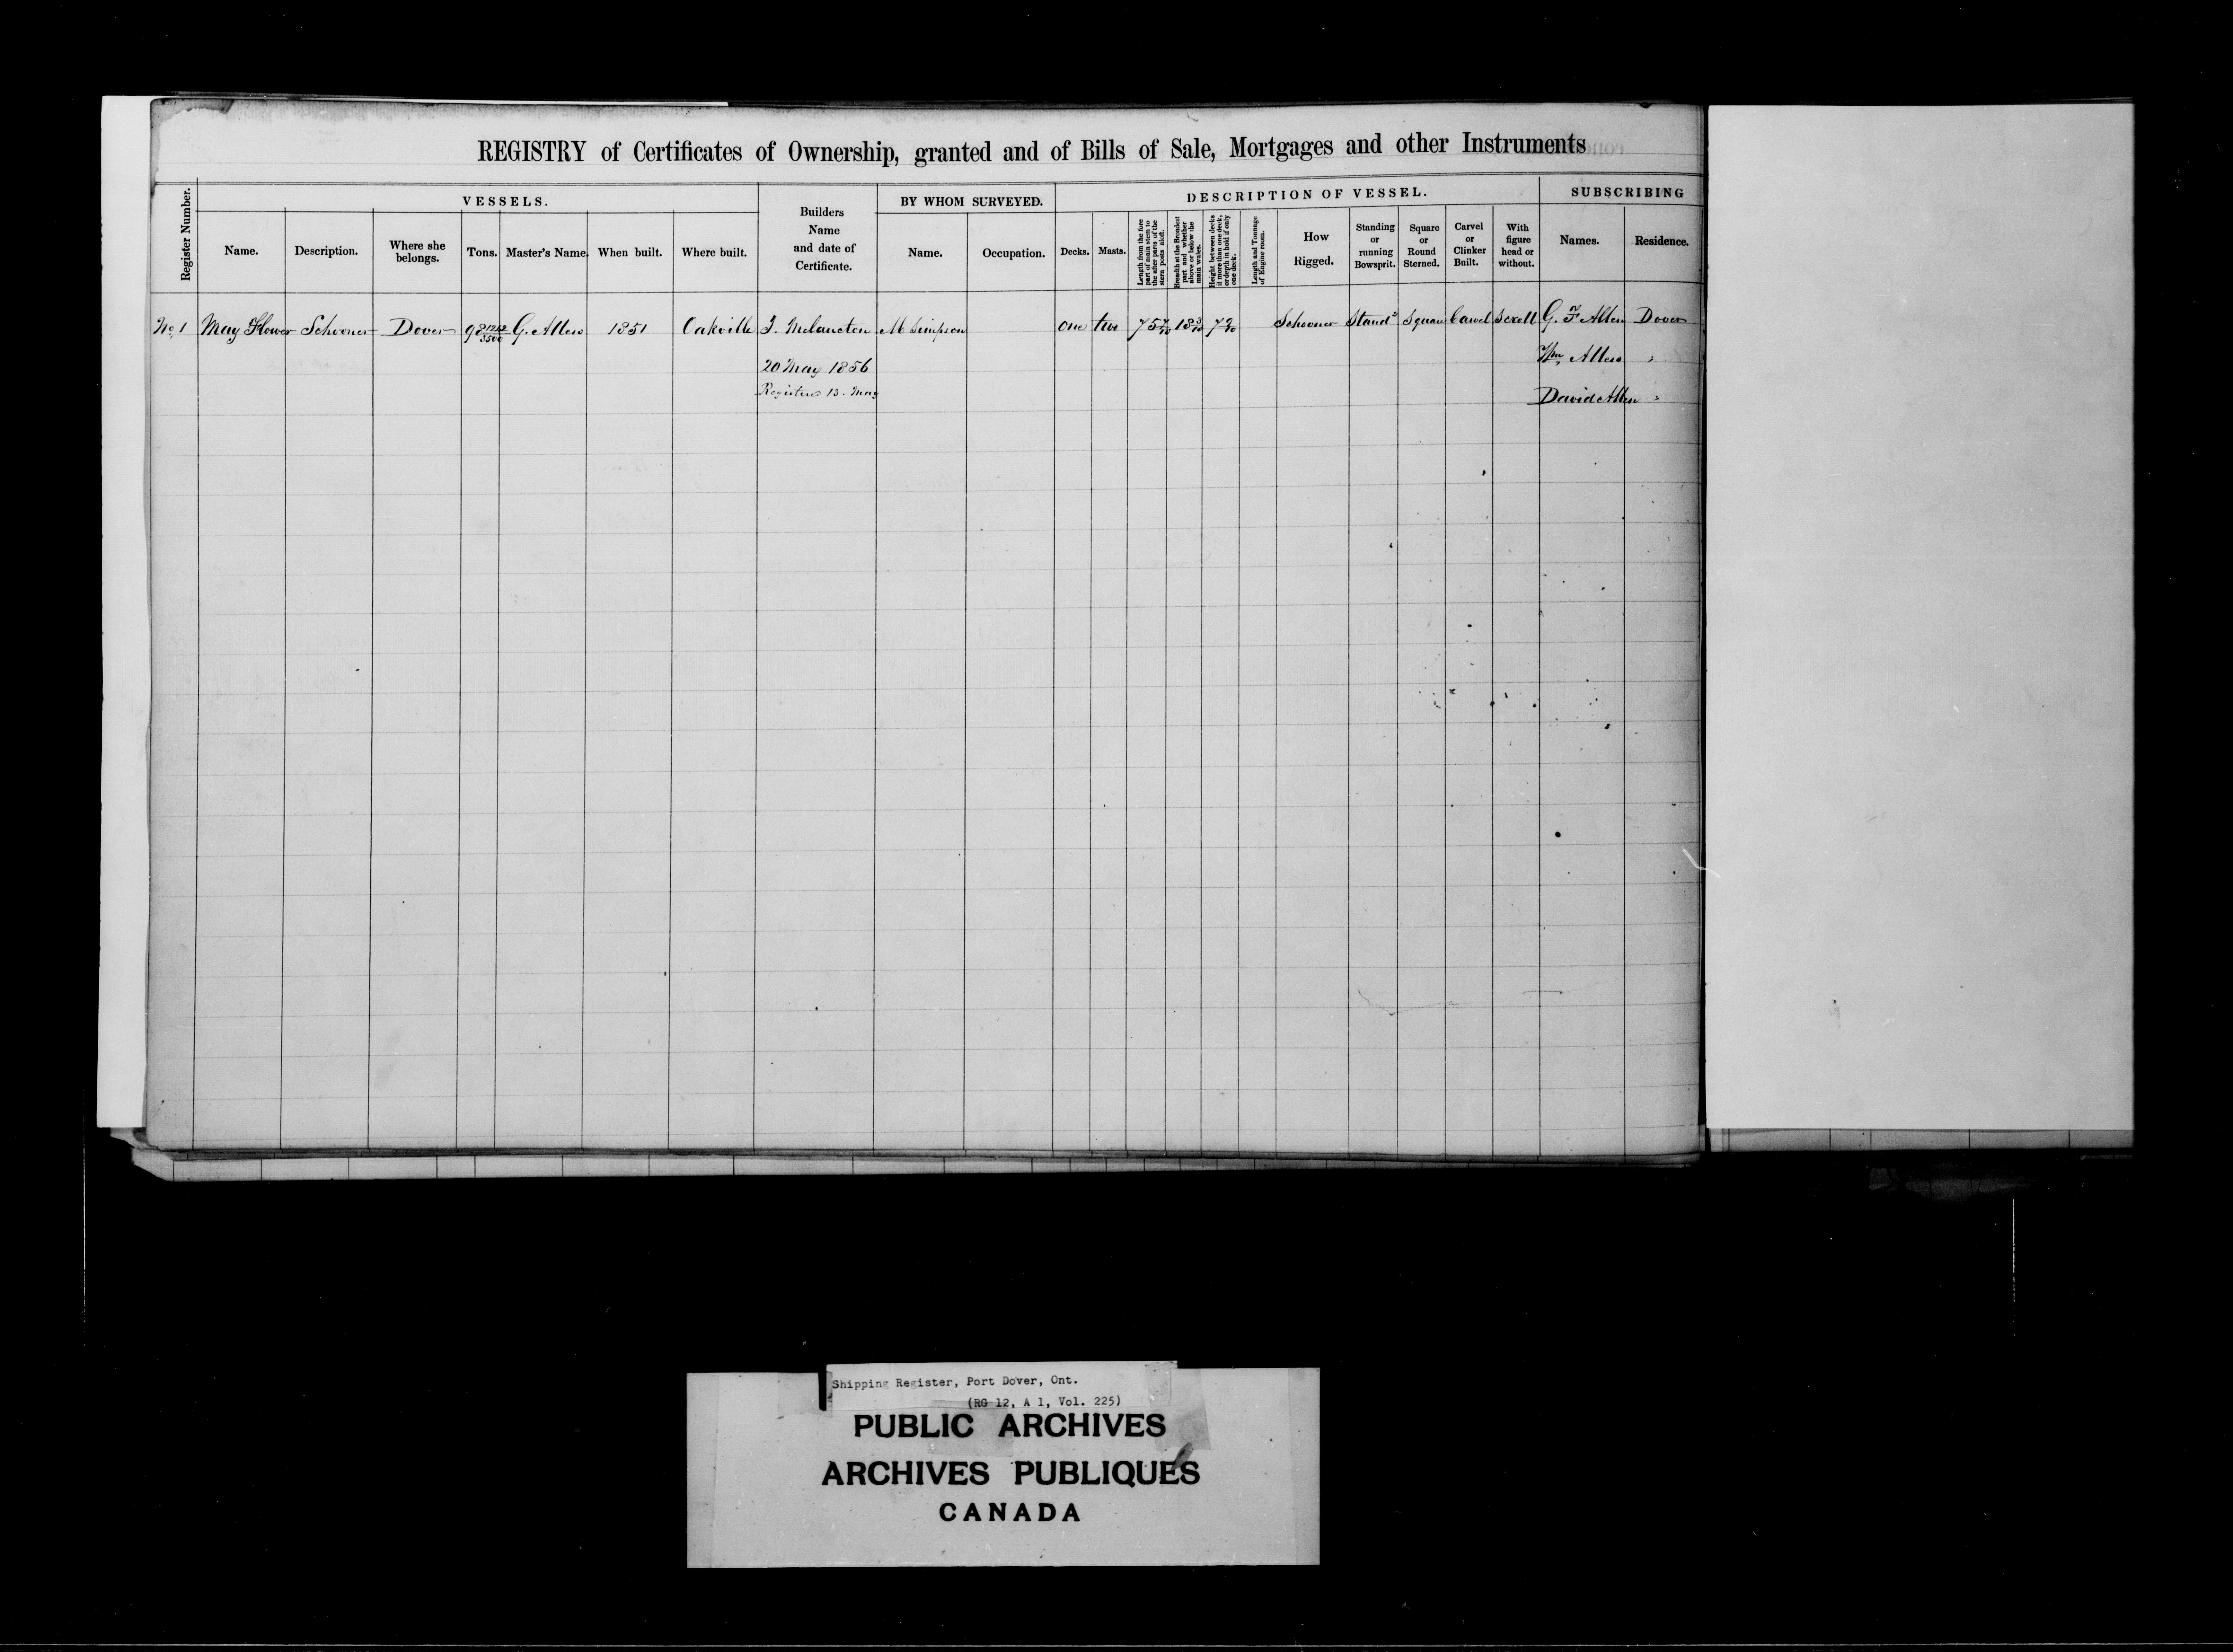 REGISTRY of Certificates of Ownership, granted and of Bills of Sale, Mortgages and other Instruments
Register Number.
VESSELS.
Name.
Description.
Where she belongs.
Tons.
Master's Name.
When built.
Where built.
Builders
Name
and date of
Certificate.
BY WHOM SURVEYED.
Name.
Occupation.
DESCRIPTION OF VESSEL.
Decks.
Masts.
Length from the fore
part of main stem to
the after parts of the
stern posts aloft.
Breadth at the Broadest
part and whether
above or below the
main wales.
Height between decks
if more than one deck,
or depth in hold if only
one deck.
Length and Tonnage
of Engine room.
How
Rigged.
Standing
or
running
Bowsprit.
Square
or
Round
Sterned.
Carvel
or
Clinker
Built.
With
figure
head or
without.
SUBSCRIBING
Names.
Residence.
No 1 May Flower Schooner Dover 98 G. Allen 1851 Oakville J. Melancton M Simpson one two 75 18 3/10 7 Schooner Stand Square Carvel Scroll G. F Allen Dover
20 May 1856 Wm Allen "
Register 13. May David Allen "
Shipping Register, Port Dover, Ont.
(RG 12, A 1, Vol. 225)
PUBLIC ARCHIVES
ARCHIVES PUBLIQUES
CANADA